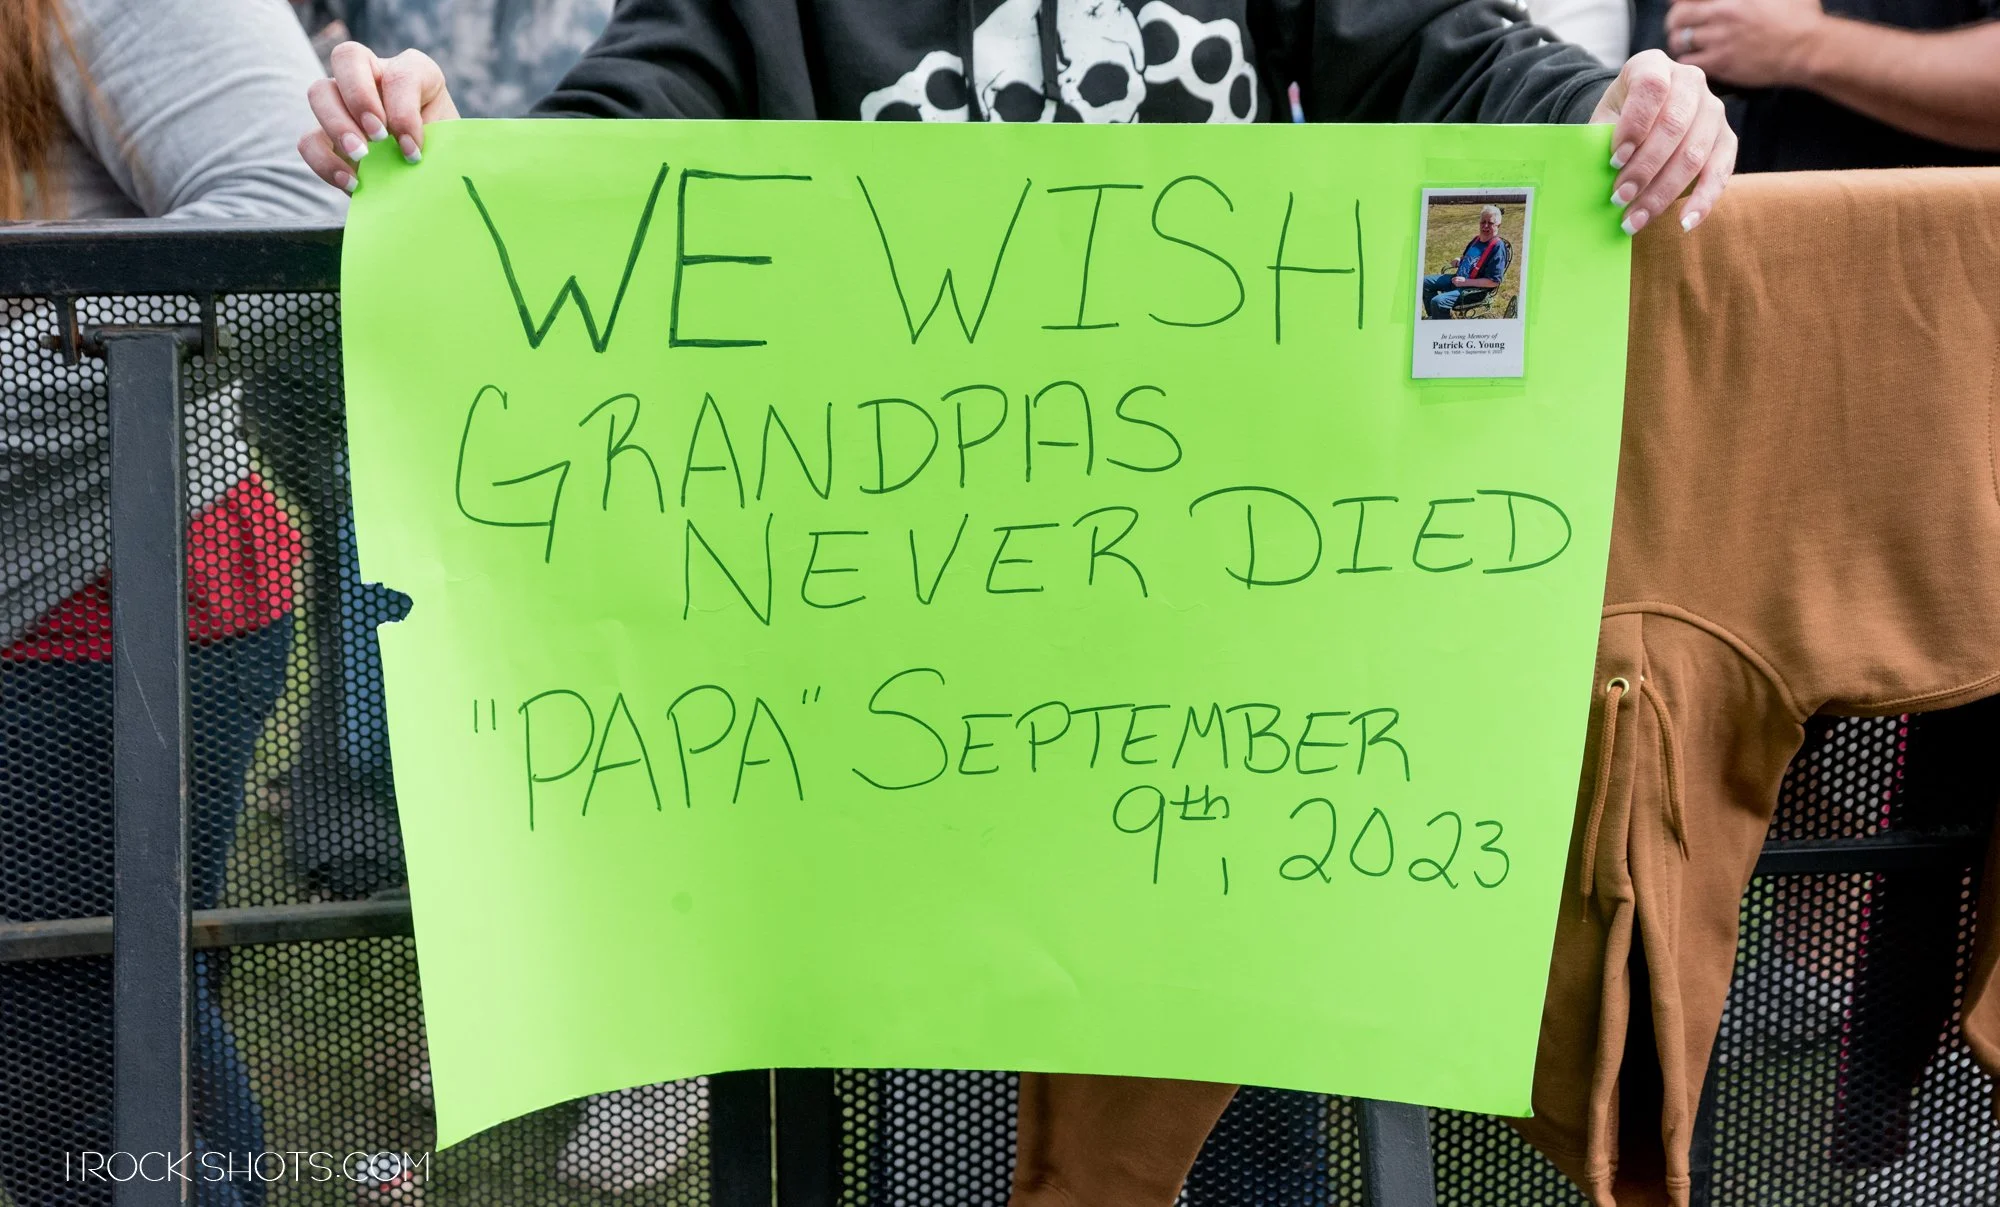 WE WISH
GRANDPAS
NEVER DIED
"PAPA" SEPTEMBER
9th, 2023
In Loving Memory of
Patrick G. Young
I ROCK SHOTS.COM